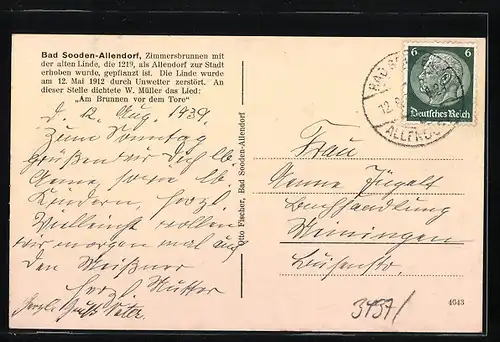 Bad Sooden-Allendorf, Zimmersbrunnen mit
der alten Linde, die 1219, als Allendorf zur Stadt
erhoben wurde, gepflanzt ist. Die Linde wurde
am 12. Mai 1912 durch Unwetter zerstört. An
dieser Stelle dichtete W. Müller das Lied:
„Am Brunnen vor dem Tore“
d. 12. Aug. 1939.
Zum Sonntag
grüßen wir Dich lb.
Anne, sowie lb.
Kindern, herzl.
Vielleicht wollen
wir morgen mal auf
den Meißner
Herzl. Mutter
Herzl. Gruß Vater.
Otto Fischer, Bad Sooden-Allendorf
6 6
Deutsches Reich
BAD
12.8.
ALLENDORF
Frau
Anne
Buchhandlung
Meiningen
3437/
4643